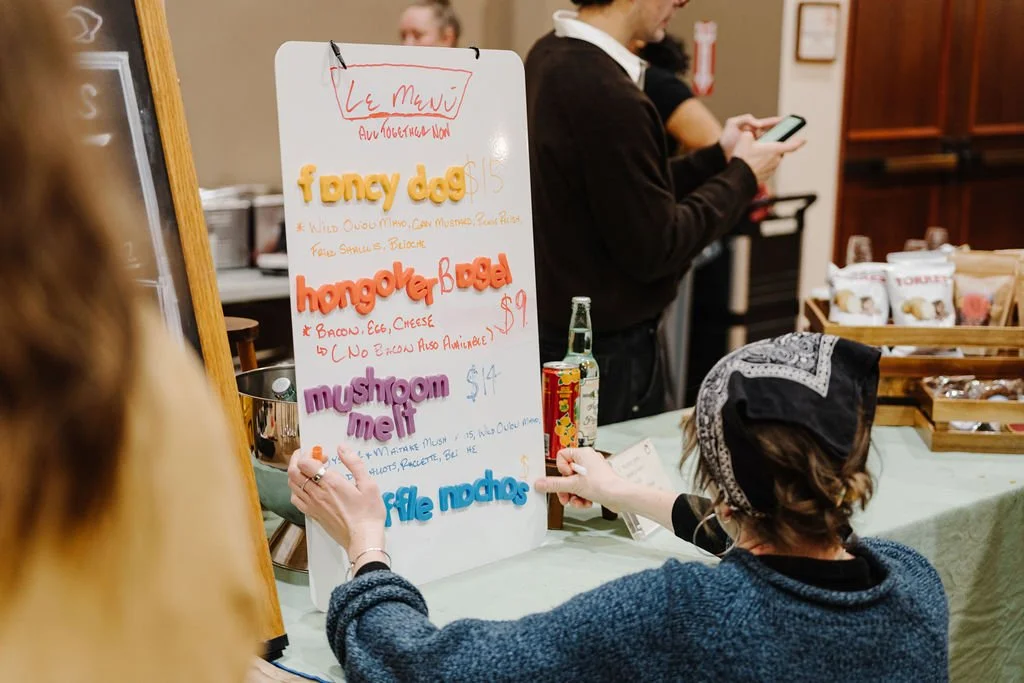 LE MENU
ALL TOGETHER NOW
fancy dog $15
* WILD ONION MAYO, GRAY MUSTARD,
FRIED SHALLOTS, BRIOCHE
hangover Bagel
$9
* BACON, EGG, CHEESE
(NO BACON ALSO AVAILABLE)
mushroom $14
melt
MAITAKE WILD ONION MAYO,
RACLETTE,
ffle nachos
TORRES